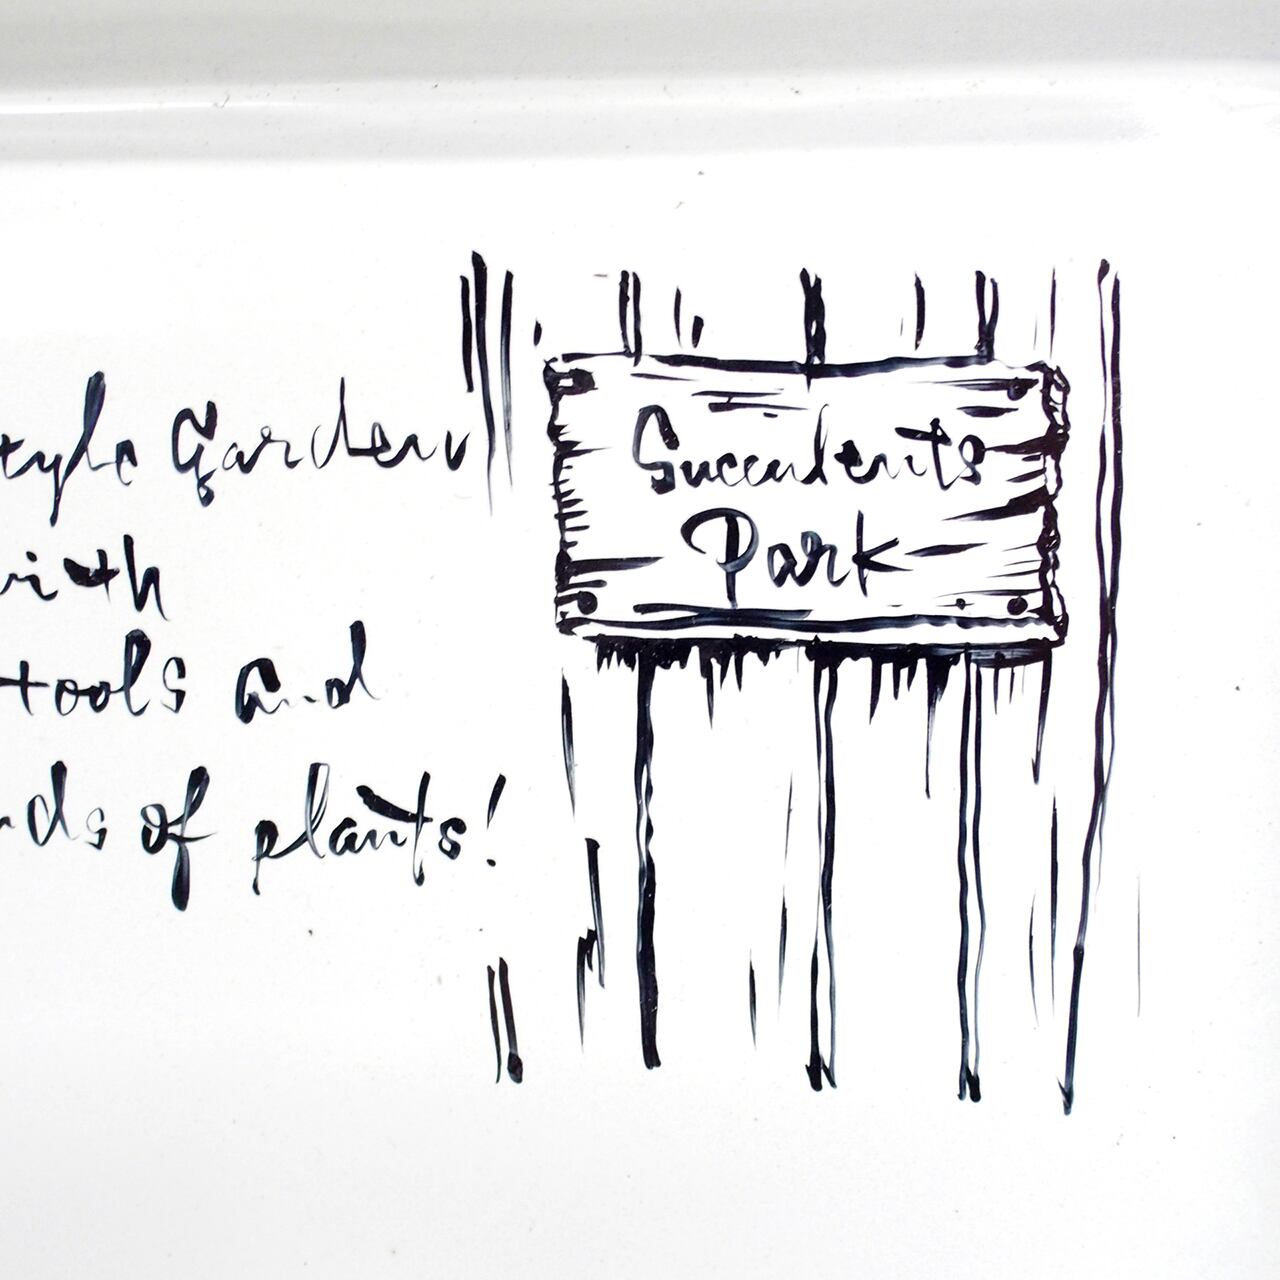 tyle Garden
with
tools and
nds of plants!
Succulents
Park